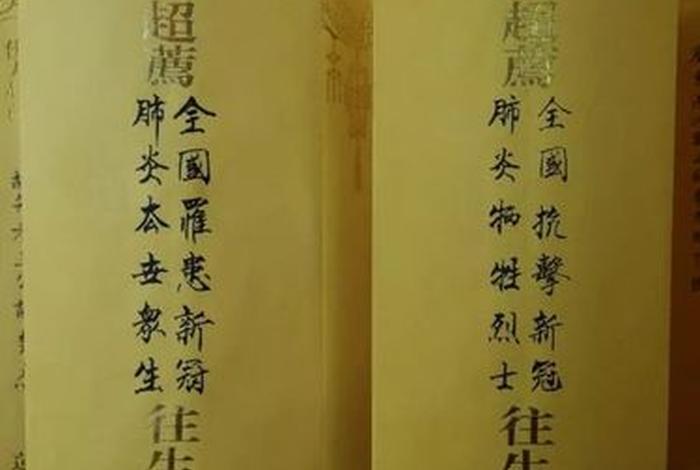 超薦
全國抗擊新冠
肺炎牺牲烈士
往生
超薦
全國罹患新冠
肺炎厺世衆生
往生